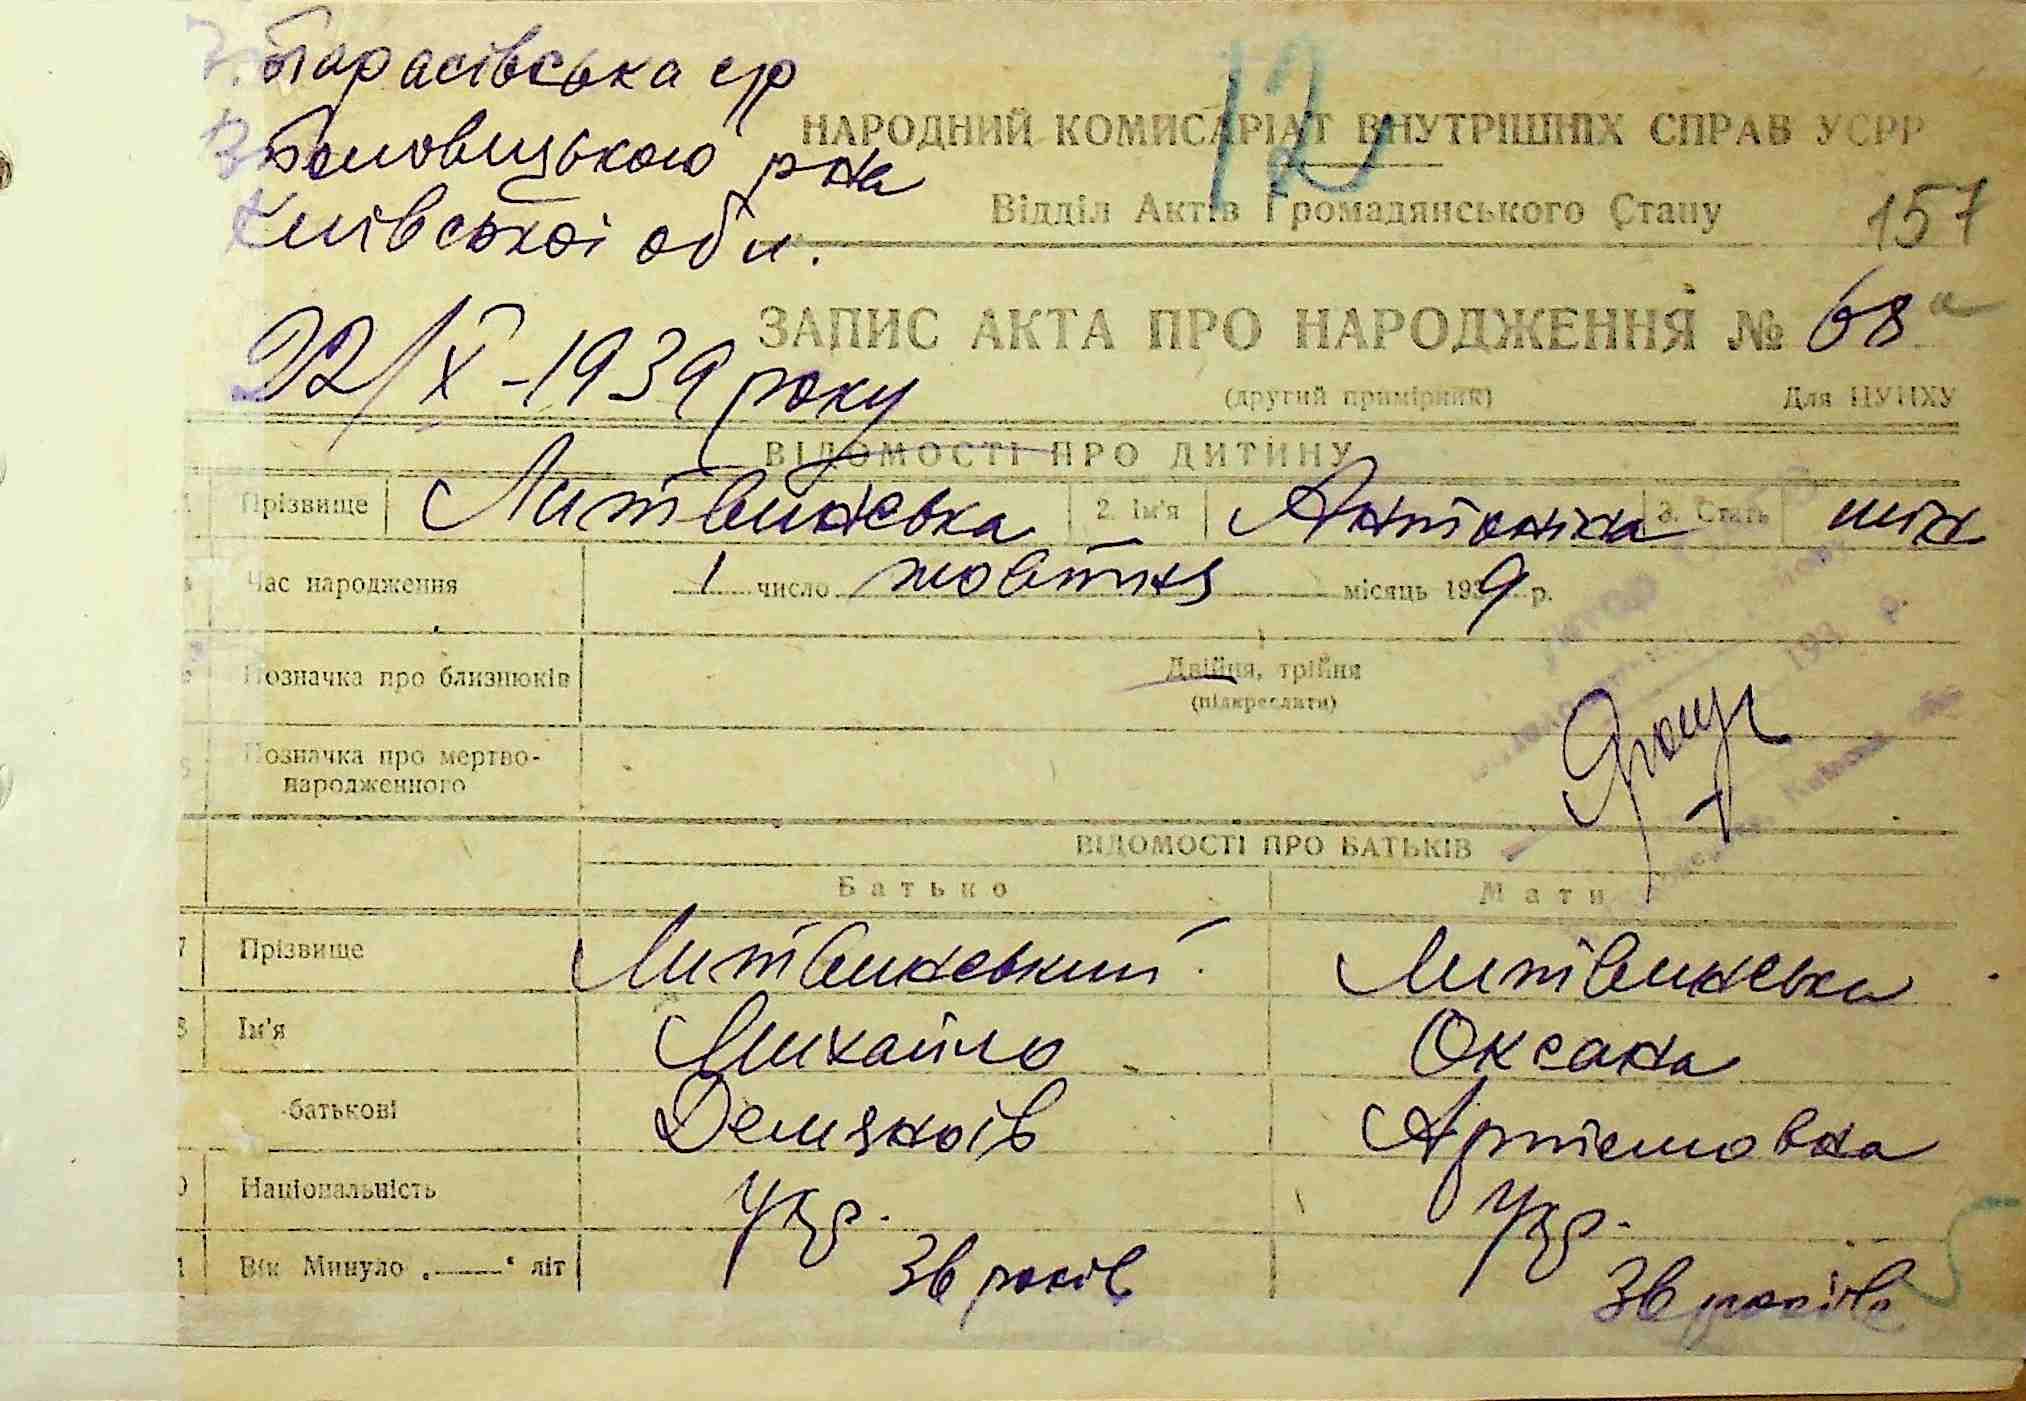 Тарасівська с/р
12
НАРОДНИЙ КОМИСАРІАТ ВНУТРІШНІХ СПРАВ УСРР
р-на
Київської обл.
Відділ Актів Громадянського Стану
157
ЗАПИС АКТА ПРО НАРОДЖЕННЯ № 68а
22/X-1939 року
(другий примірник) Для ЦУНХУ
ВІДОМОСТІ ПРО ДИТИНУ
Прізвище Литвинська 2. Ім'я Антоніна 3. Стать жін
Час народження 1 число жовтня місяць 1939 р.
Позначка про близнюків Двійня, трійня
(підкреслити)
Позначка про мертво-
народженного
ВІДОМОСТІ ПРО БАТЬКІВ
Батько Мати
7 Прізвище Литвинський Литвинська
8 Ім'я Михайло Оксана
-батькові Демяноів Артемовна
Національність Укр. Укр.
Вік Минуло „——“ літ 36 років 36 років